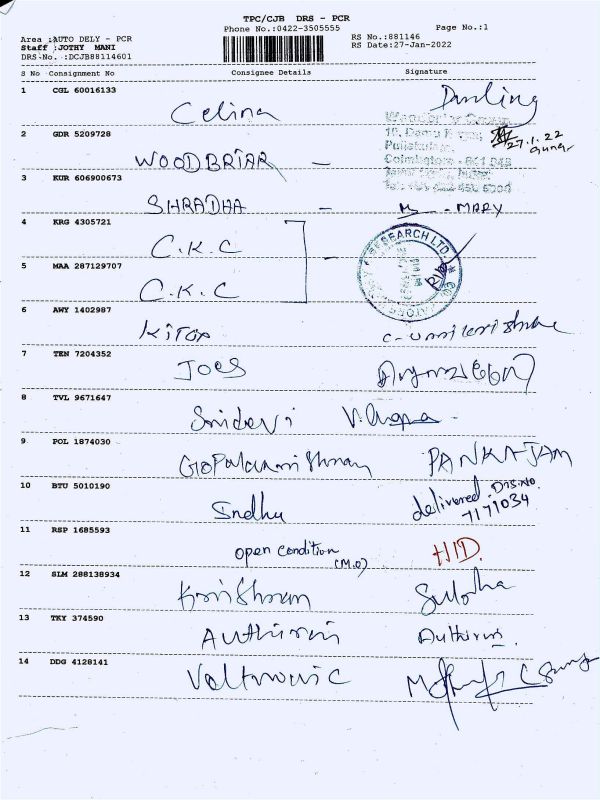 TPC/CJB DRS - PCR
Phone No.:0422-3505555 Page No.:1
Area :AUTO DELY - PCR RS No.:881146
Staff :JOTHY MANI RS Date:27-Jan-2022
DRS-No. :DCJB88114601
S No Consignment No Consignee Details Signature
1 CGL 60016133
Celina Darling
2 GDR 5209728
27.1.22
WOODBRIAR -
Coimbatore
3 KUR 606900673
SHRADHA - MARY
4 KRG 4305721
C.K.C
RESEARCH LTD.
5 MAA 287129707
C.K.C
6 AWY 1402987
KITEX
7 TEN 7204352
JOES
8 TVL 9671647
Sridevi
9 POL 1874030
Gopalakrishnan PANKAJAM
10 BTU 5010190
Sndhu delivered DRS.NO.
7171034
11 RSP 1685593
open condition HID.
(M.O)
12 SLM 288138934
Krishnan
13 TKY 374590
Authirai Authirai.
14 DDG 4128141